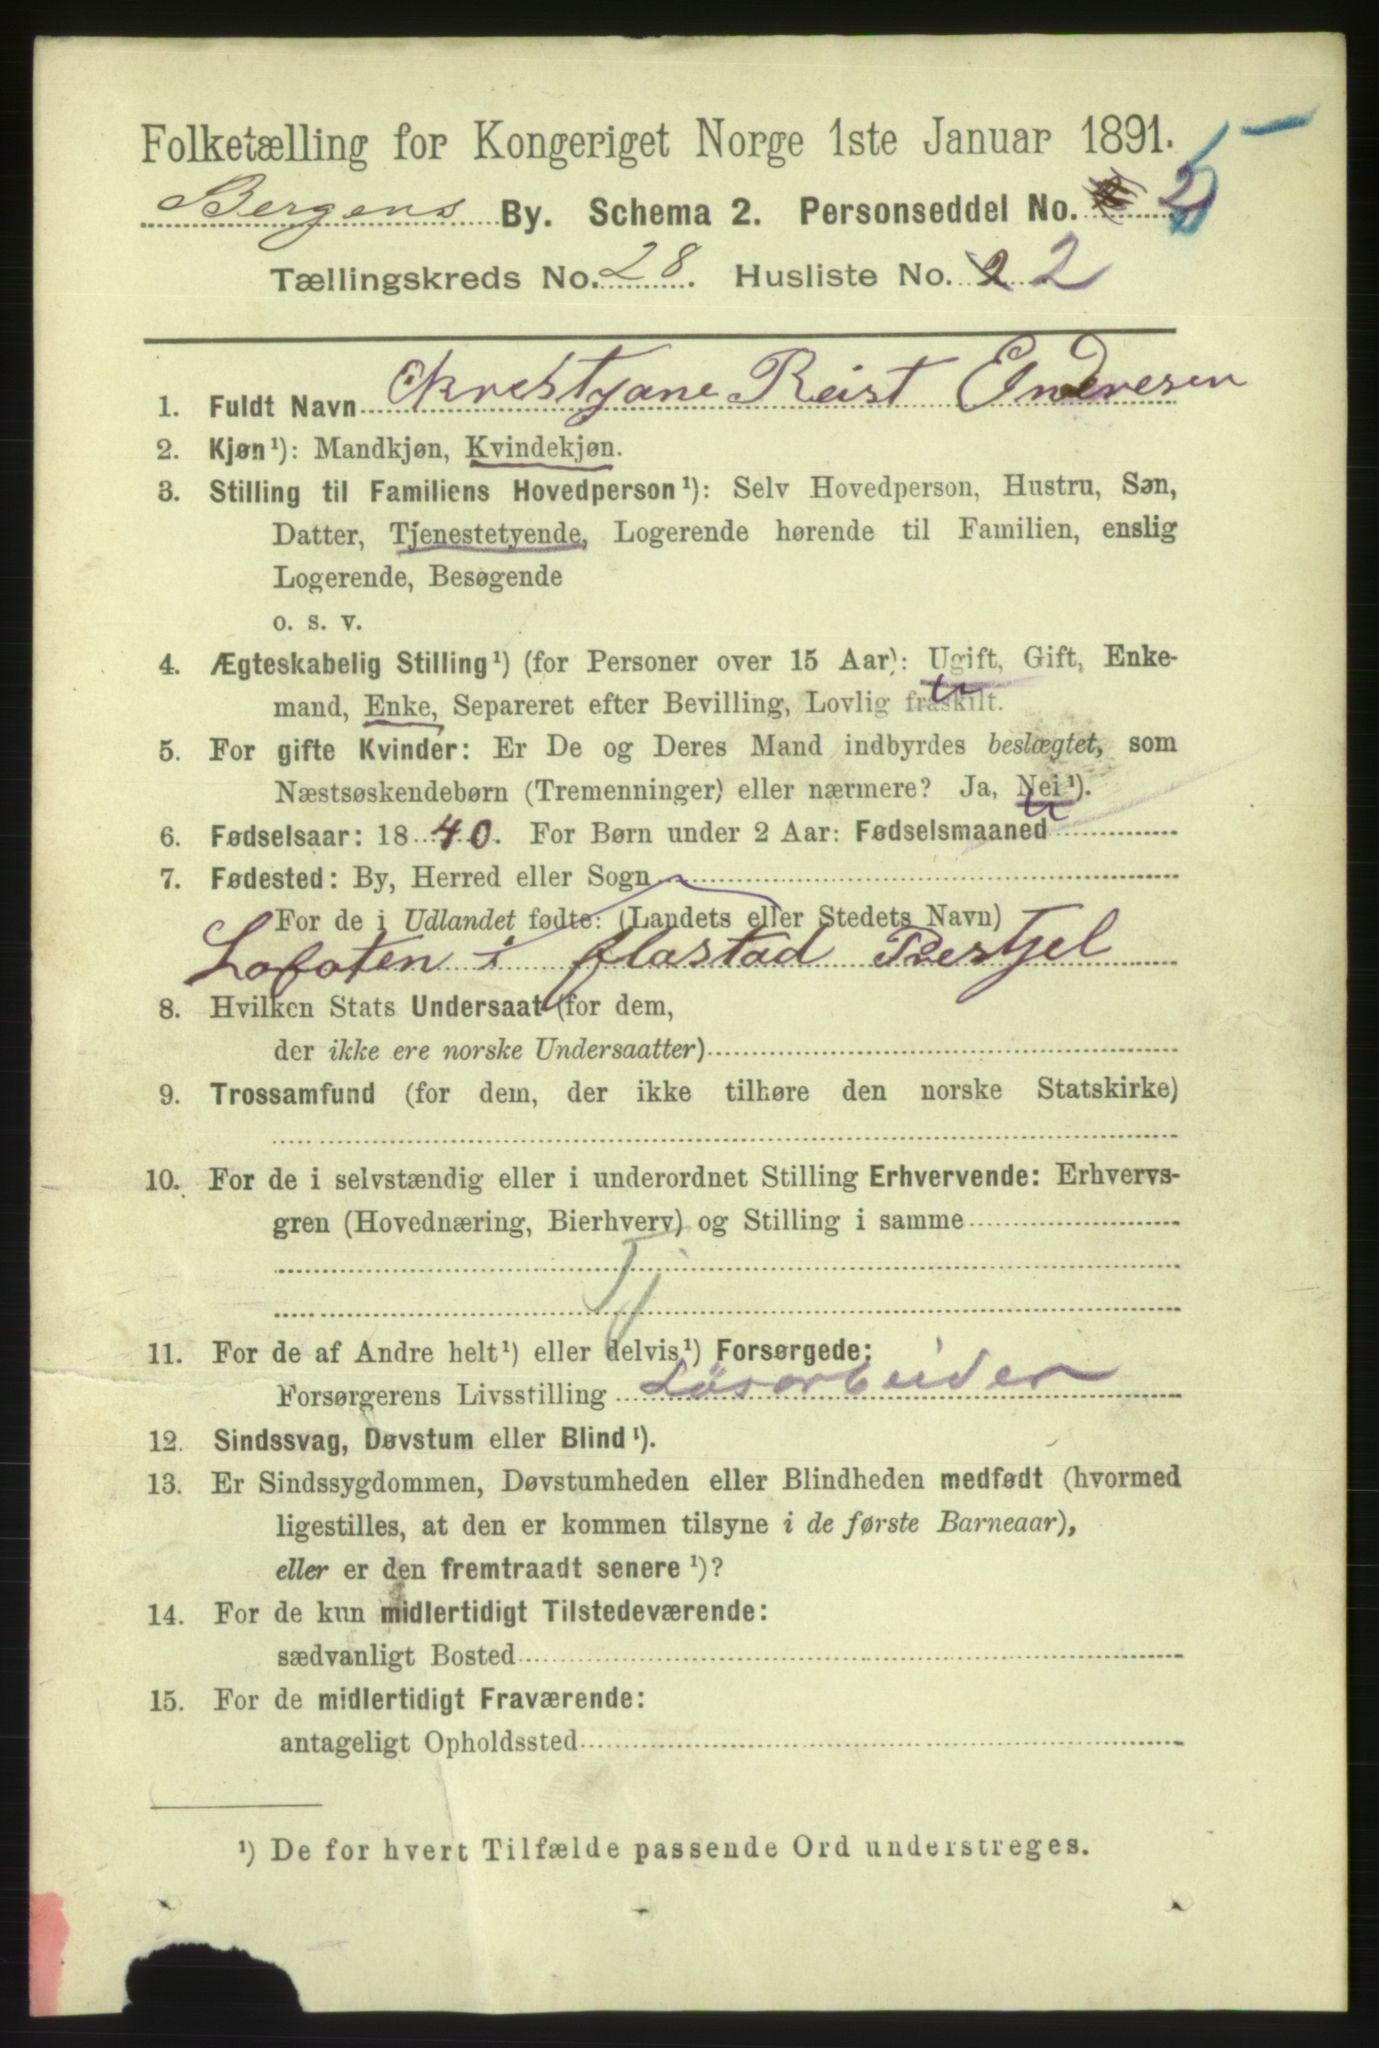 Folketælling for Kongeriget Norge 1ste Januar 1891.
Bergens By. Schema 2. Personseddel No. 2 5
Tællingskreds No. 28. Husliste No. 2 2
1. Fuldt Navn Krestyane Reist Enderesen
2. Kjøn¹): Mandkjøn, Kvindekjøn.
3. Stilling til Familiens Hovedperson¹): Selv Hovedperson, Hustru, Søn,
Datter, Tjenestetyende, Logerende hørende til Familien, enslig
Logerende, Besøgende
o. s. v.
4. Ægteskabelig Stilling¹) (for Personer over 15 Aar): Ugift, Gift, Enke-
mand, Enke, Separeret efter Bevilling, Lovlig fraskilt.
5. For gifte Kvinder: Er De og Deres Mand indbyrdes beslægtet, som
Næstsøskendebørn (Tremenninger) eller nærmere? Ja, Nei¹).
6. Fødselsaar: 1840. For Børn under 2 Aar: Fødselsmaaned
7. Fødested: By, Herred eller Sogn
For de i Udlandet fødte: (Landets eller Stedets Navn)
Lofoten i flastad Prestjel
8. Hvilken Stats Undersaat (for dem,
der ikke ere norske Undersaatter)
9. Trossamfund (for dem, der ikke tilhøre den norske Statskirke)
10. For de i selvstændig eller i underordnet Stilling Erhvervende: Erhvervs-
gren (Hovednæring, Bierhverv) og Stilling i samme
Tj
11. For de af Andre helt¹) eller delvis¹) Forsørgede:
Forsørgerens Livsstilling Løsarbeider
12. Sindssvag, Døvstum eller Blind¹).
13. Er Sindssygdommen, Døvstumheden eller Blindheden medfødt (hvormed
ligestilles, at den er kommen tilsyne i de første Barneaar),
eller er den fremtraadt senere¹)?
14. For de kun midlertidigt Tilstedeværende:
sædvanligt Bosted
15. For de midlertidigt Fraværende:
antageligt Opholdssted
¹) De for hvert Tilfælde passende Ord understreges.